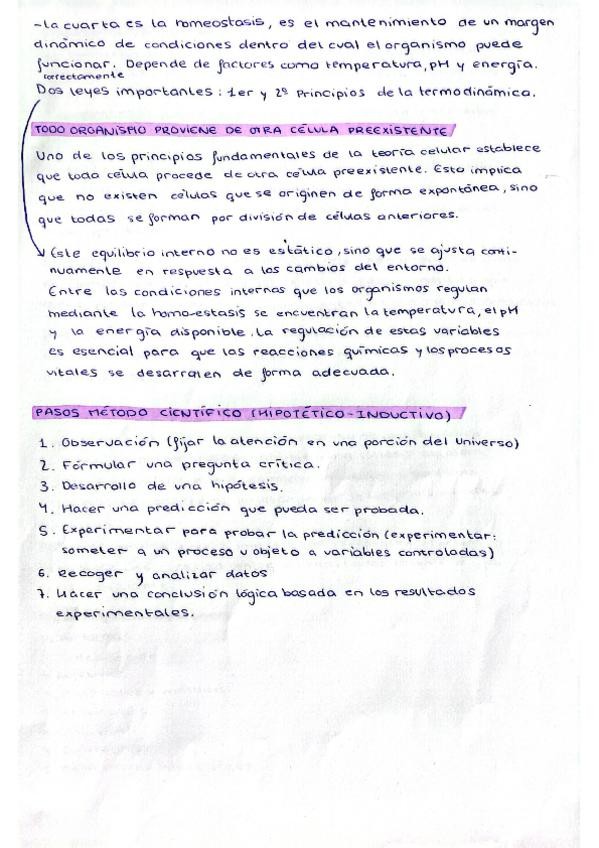 -La cuarta es la homeostasis, es el mantenimiento de un margen
dinámico de condiciones dentro del cual el organismo puede
funcionar. Depende de factores como temperatura, pH y energía.
correctamente
Dos leyes importantes: 1er y 2º Principios de la termodinámica.
TODO ORGANISMO PROVIENE DE OTRA CÉLULA PREEXISTENTE
Uno de los principios fundamentales de la teoría celular establece
que toda célula procede de otra célula preexistente. Esto implica
que no existen células que se originen de forma expontánea, sino
que todas se forman por división de células anteriores.
Este equilibrio interno no es estático, sino que se ajusta conti-
nuamente en respuesta a los cambios del entorno.
Entre las condiciones internas que los organismos regulan
mediante la homo-estasis se encuentran la temperatura, el pH
y la energía disponible. La regulación de estas variables
es esencial para que las reacciones químicas y los procesos
vitales se desarrollen de forma adecuada.
PASOS MÉTODO CIENTÍFICO (HIPOTÉTICO-INDUCTIVO)
1. Observación (fijar la atención en una porción del Universo)
2. Formular una pregunta crítica.
3. Desarrollo de una hipótesis.
4. Hacer una predicción que pueda ser probada.
5. Experimentar para probar la predicción (experimentar:
someter a un proceso u objeto a variables controladas)
6. Recoger y analizar datos
7. Hacer una conclusión lógica basada en los resultados
experimentales.